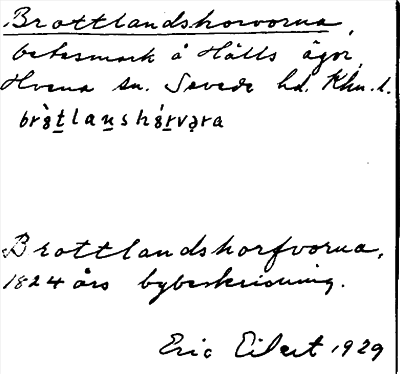 Brottlandshorvorna,
betesmark å Hälls ägor,
Hvena sn. Sevede hd. Klm. l.
Brottlandshorfvorna,
1824 års bybeskrivning.
Eric Eilert 1929